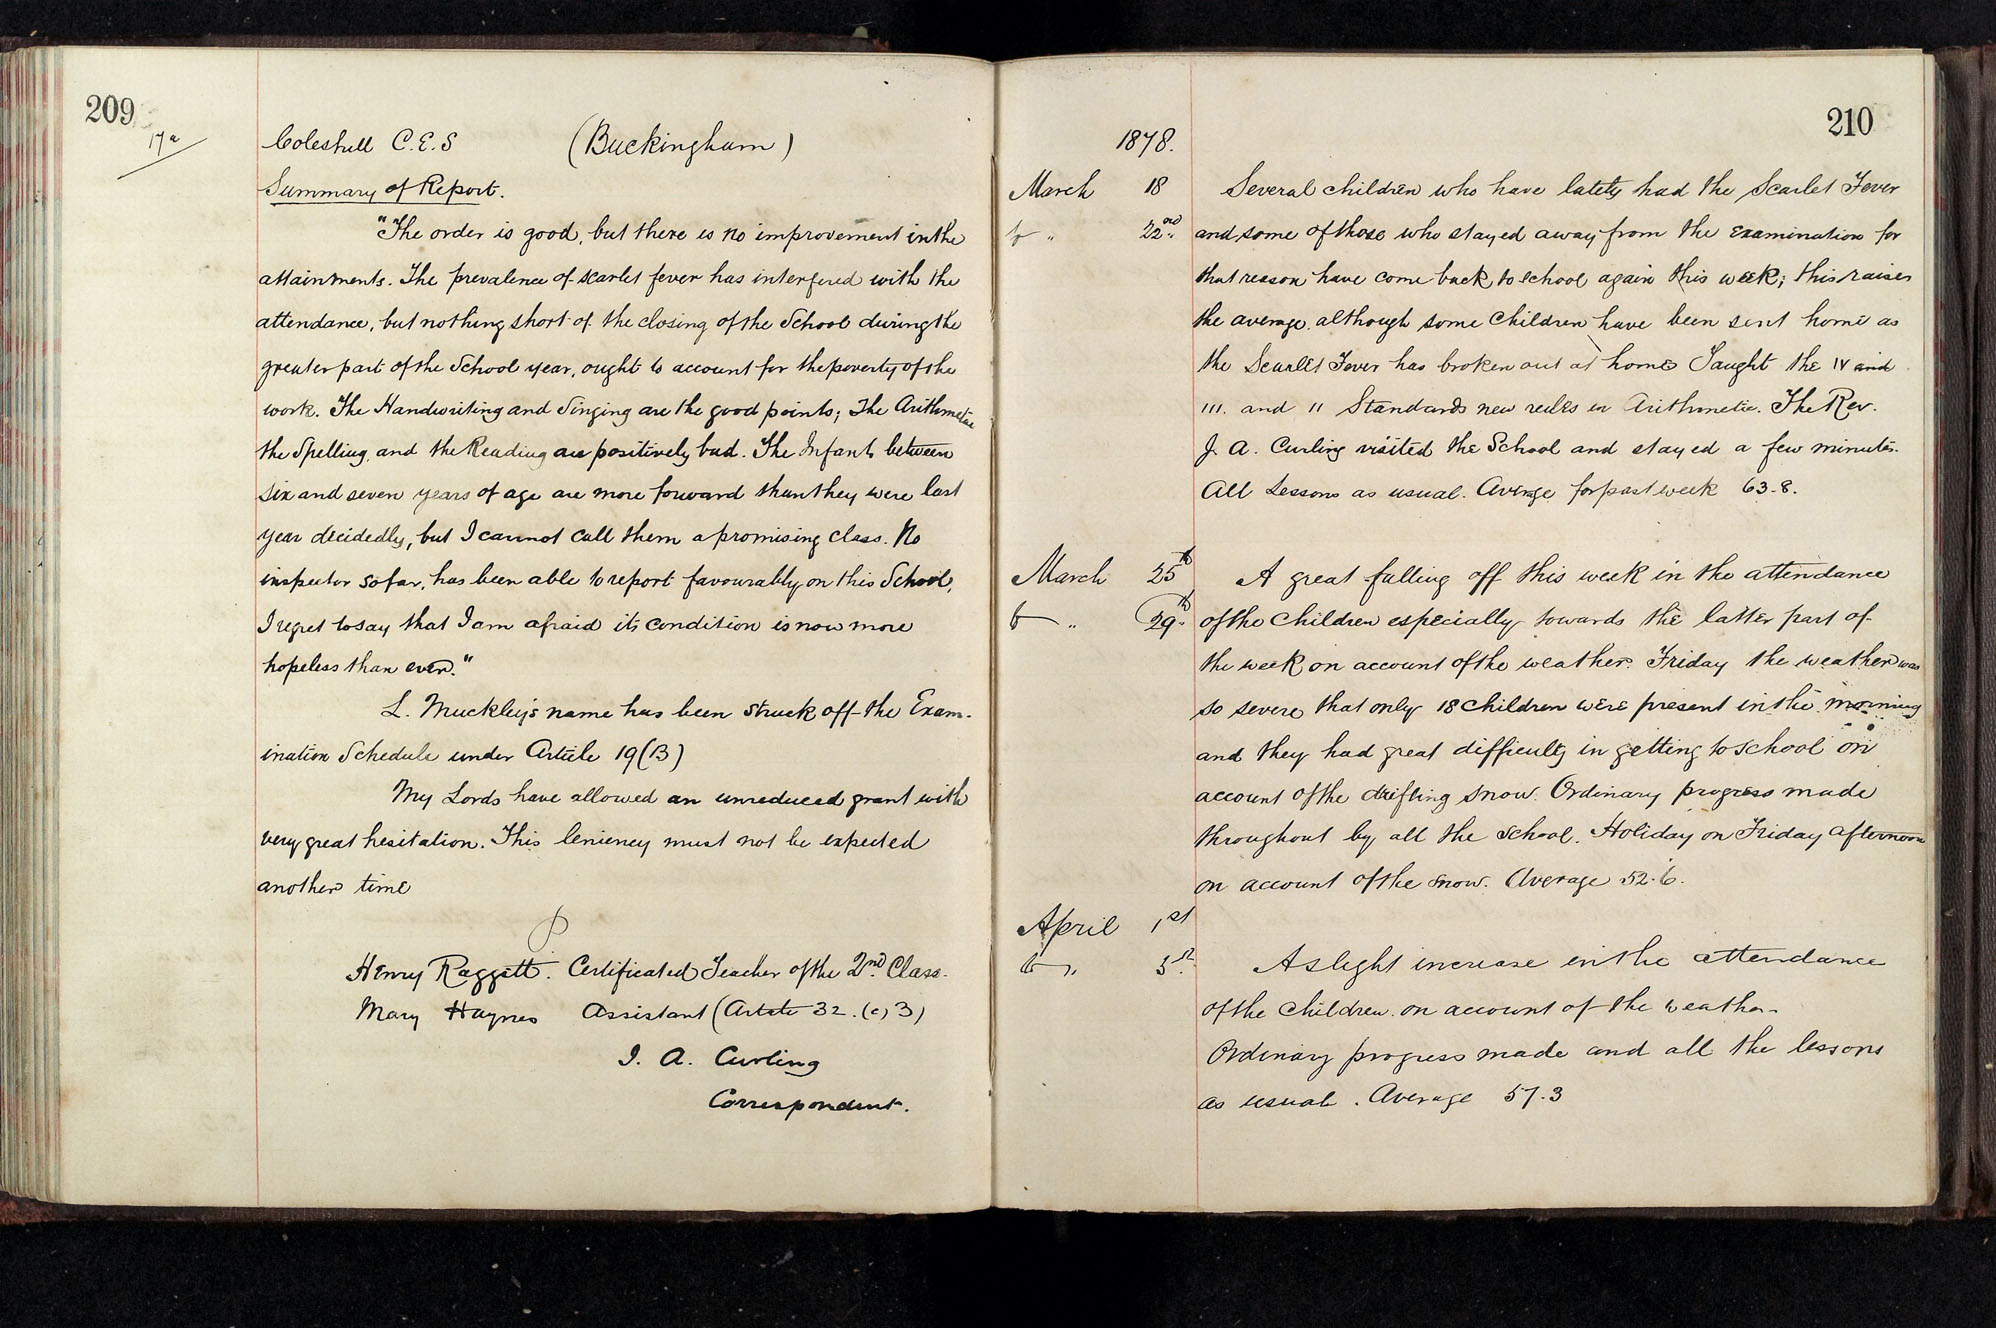 209
17a
Coleshill C.E.S (Buckingham)
Summary of Report.
"The order is good, but there is no improvement in the
attainments. The prevalence of scarlet fever has interfered with the
attendance, but nothing short of the closing of the School during the
greater part of the School year, ought to account for the poverty of the
work. The Handwriting and Singing are the good points; The Arithmetic
the Spelling, and the Reading are positively bad. The Infants between
six and seven years of age are more forward than they were last
year decidedly, but I cannot call them a promising class. No
inspector so far, has been able to report favourably on this School,
I regret to say that I am afraid its condition is now more
hopeless than ever."
L. Muckley's name has been struck off the Exam-
ination Schedule under Article 19(B)
My Lords have allowed an unreduced grant with
very great hesitation. This leniency must not be expected
another time
Henry Raggett. Certificated Teacher of the 2nd Class.
Mary Haynes Assistant (Article 32.(c)3)
J. A. Curling
Correspondent.
210
1878.
March 18 Several children who have lately had the Scarlet Fever
to " 22nd. and some of those who stayed away from the Examination for
that reason have come back to school again this week; this raises
the average, although some Children have been sent home as
the Scarlet Fever has broken out at home Taught the IV and
III. and II Standards new rules in Arithmetic. The Rev.
J. A. Curling visited the School and stayed a few minutes.
All Lessons as usual. Average for past week 63.8.
March 25th A great falling off this week in the attendance
to " 29th. of the Children especially towards the latter part of
the week on account of the weather. Friday the weather was
so severe that only 18 Children were present in the morning
and they had great difficulty in getting to school on
account of the drifting snow. Ordinary progress made
throughout by all the school. Holiday on Friday afternoon
on account of the snow. Average 52.6.
April 1st
to " 5th. A slight increase in the attendance
of the Children. on account of the weather.
Ordinary progress made and all the lessons
as usual. Average 57.3